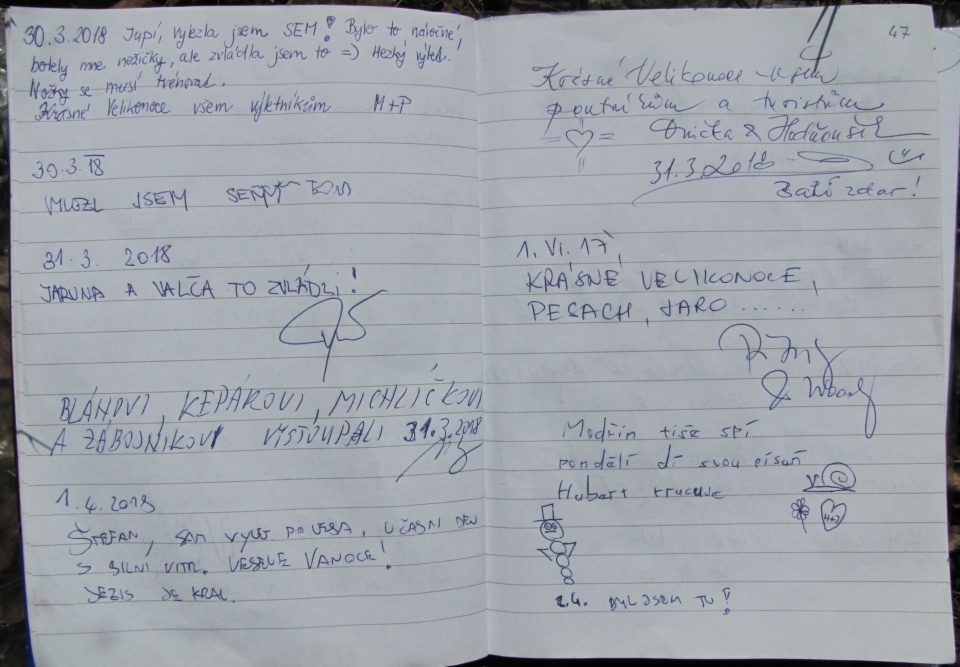 30.3.2018 Jupí, vylezla jsem SEM! Bylo to náročné,
bolely mne nožičky, ale zvládla jsem to =) Hezký výhled.
Nožky se musí trénovat.
Krásné Velikonoce všem výletníkům M+P
30.3.18
VYLEZL JSEM SEM
31.3. 2018
JARUNA A VALČA TO ZVLÁDLI!
BLÁHOVI, KEPÁKOVI, MICHLIČKOVI
A ZÁBOJNÍKOVI VYSTOUPALI 31.3.2018
1.4.2018
ŠTEFAN, SAM VYLET PO LESA, UČASNI DEN
S SILNI VITR. VESELE VANOCE!
JEZIS JE KRAL.
47
Krásné Velikonoce všem
poutníkům a turistům
Anička &
31.3.2018
Zatí zdar!
1. VI. 17,
KRÁSNÉ VELIKONOCE,
PESACH, JARO ......
& Woody
Modřín tiše spí
pondělí dí svou píseň
Hubert krucuje
4+2
2.4. BYL JSEM TU!